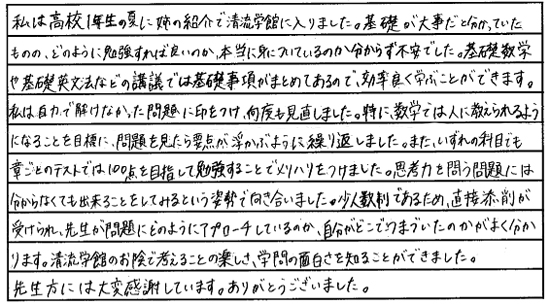 私は高校1年生の夏に姉の紹介で清流学館に入りました。基礎が大事だと分かっていた
ものの、どのように勉強すれば良いのか、本当に身についているのか分からず不安でした。基礎数学
や基礎英文法などの講議では基礎事項がまとめてあるので、効率良く学ぶことができます。
私は自力で解けなかった問題に印をつけ、何度も見直しました。特に、数学では人に教えられるよう
になることを目標に、問題を見たら要点が浮かぶように繰り返しました。また、いずれの科目でも
章ごとのテストでは100点を目指して勉強することでメリハリをつけました。思考力を問う問題には
分からなくても出来ることをしてみるという姿勢で向き合いました。少人数制であるため、直接添削が
受けられ、先生が問題にどのようにアプローチしているのか、自分がどこでつまづいたのかがよく分か
ります。清流学館のお陰で考えることの楽しさ、学問の面白さを知ることができました。
先生方には大変感謝しています。ありがとうございました。